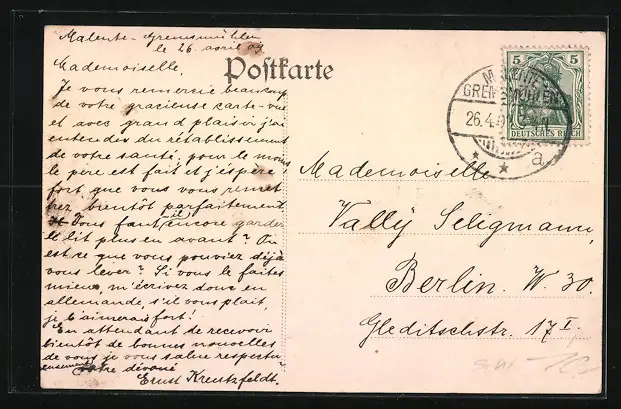 Malente-Gremsmühlen
le 26 avril 09
Mademoiselle,
Je vous remercie beaucoup
de votre gracieuse carte-vue
et avec grand plaisir j'ai
entendu du rétablissement
de votre santé, pour le moins
le père est fait et j'espère
fort que vous vous remet
trez bientôt parfaitement
Vous faut il encore garder
le lit plus en avant? Ou
est ce que vous pouviez déjà
vous lever? Si vous le faites
mieux, m'écrivez donc en
allemande, s'il vous plait,
je l'aimerais fort!
En attendant de recevoir
bientôt de bonnes nouvelles
de vous je vous salue respectu
eusement votre dévoué
Ernst Kreutzfeldt.
Postkarte
5 5
DEUTSCHES REICH
GREMSMÜHLEN
26.4.0
a
Mademoiselle
Vally Seligmann,
Berlin. W. 30.
Gleditschstr. 17 I.